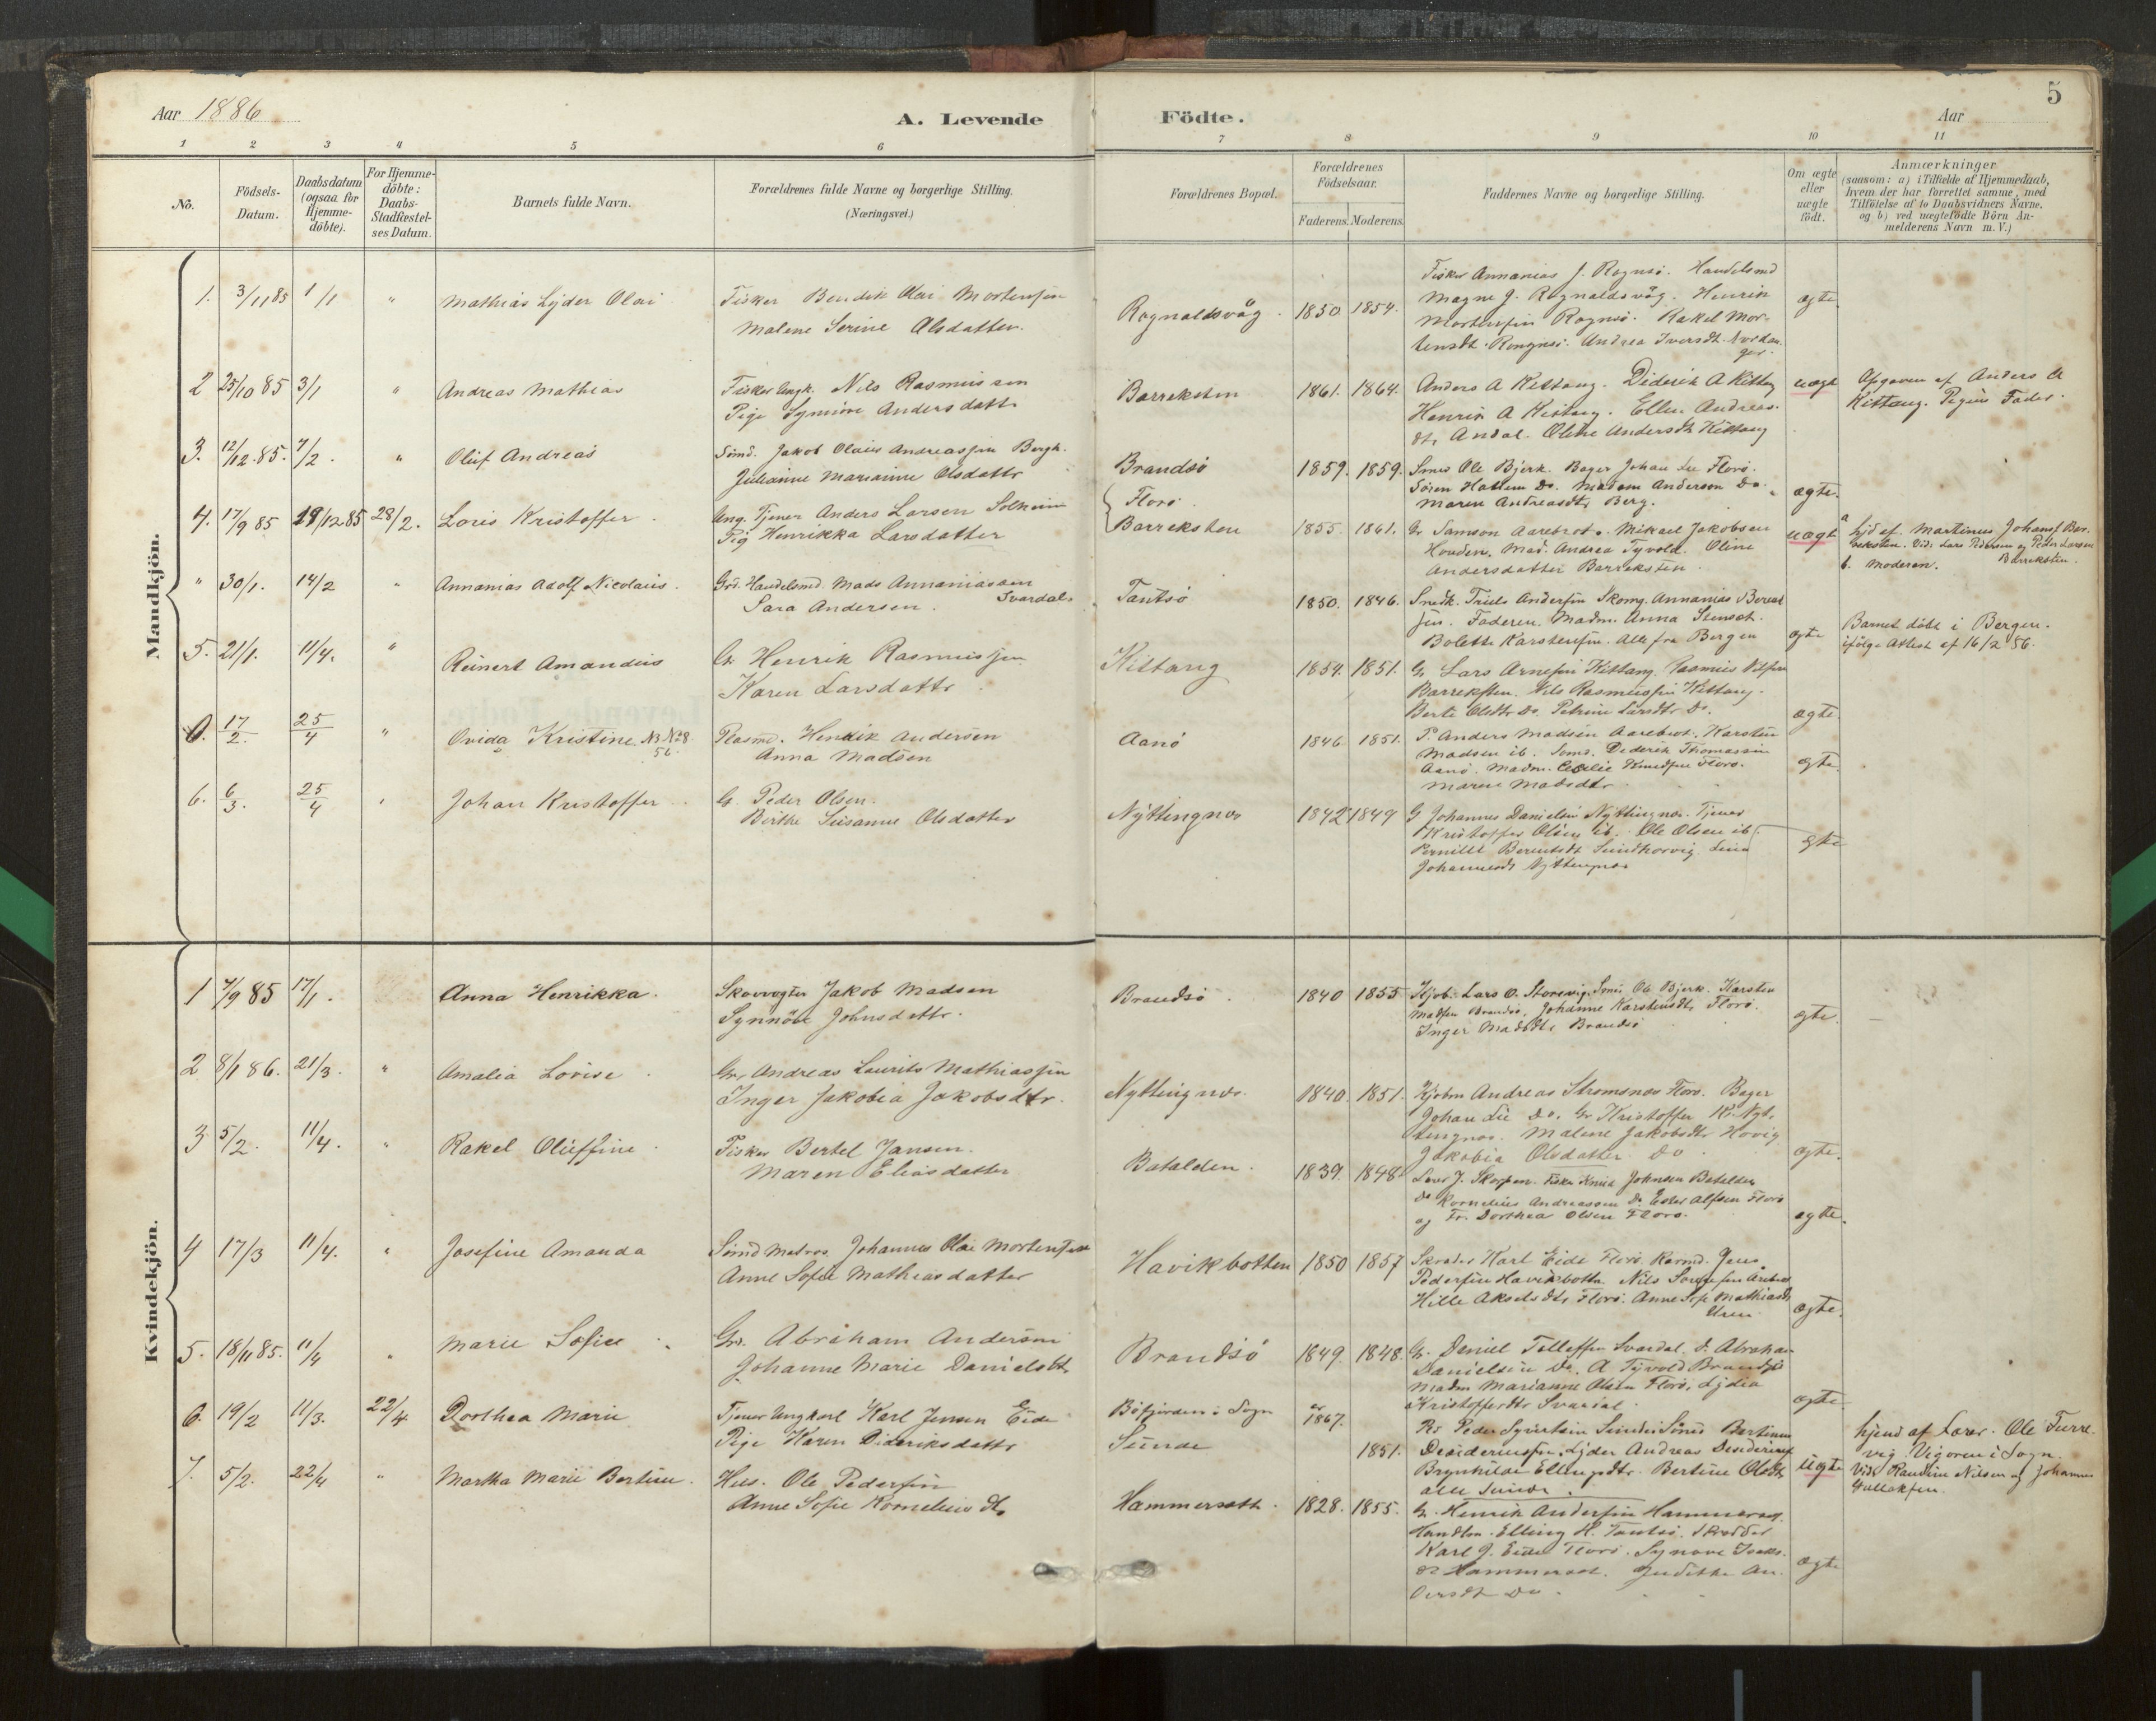 Aar 1886
A. Levende
Födte.
Aar
5
1 2 3 4 5 6 7 8 9 10 11
No.
Födsels-
Datum.
Daabsdatum
(ogsaa for
Hjemme-
döbte).
For Hjemme-
döbte:
Daabs-
Stadfæstel-
ses Datum.
Barnets fulde Navn.
Forældrenes fulde Navne og borgerlige Stilling.
(Næringsvei.)
Forældrenes Bopæl.
Forældrenes
Födselsaar.
Faderens. Moderens.
Faddernes Navne og borgerlige Stilling.
Om ægte
eller
uægte
födt.
Anmærkninger
(saasom: a) i Tilfælde af Hjemmedaab,
hvem der har forrettet samme, med
Tilföielse af to Daabsvidners Navne.
og b) ved uægtefödte Börn An-
melderens Navn m. V.)
Mandkjön.
1. 3/11 85 1/1 " Mathias Lyder Olai
Fisker Bendik Olai Mortensen
Malene Serine Olsdatter.
Rognaldsvåg. 1850. 1854.
Fisker Annanias J. Rognsö. Handelsmd
Magne J. Rognaldsvåg. Henrik
Mortensen Rognsö. Rakel Mor-
tensdt. Rongnsö. Andrea Iversdt.
ægte.
2 25/10 85 3/1 " Andreas Mathias
Fisker Ungk. Nils Rasmussen
Pige Synnöve Andersdatt.
Barreksten 1861. 1864.
Anders A Kittang. Diderik A Kittang
Henrik A Kittang. Ellen Andreas-
dtr Andal. Oline Andersdtr Kittang
uægt
Opgaven af Anders A
Kittang. Pigens Fader.
3. 12/12 85. 7/2. " Oluf Andreas
Smd. Jakob Olaus Andreassen Bergh.
Julianne Marianne Olsdattr
Brandsö 1859. 1859.
Smed Ole Bjerk. Bager Johan Lie Florö.
Sören Hatlem Do. Madam Anderson Do.
Maren Andreasdtr Berg.
ægte.
4. 17/9 85 19/12 85 28/2. Loris Kristoffer.
Ung. Tjener Anders Larsen Solheim
Pig Henrikka Larsdatter
Florö
Barreksten 1855. 1861.
Gr Samson Aarebrot. Mikael Jakobsen
Hovden. Mad. Andrea Tyvold. Oline
Andersdatter Barreksten.
uægt
hjd af. Martinus Johans Bar-
reksten. Vid: Lars Pedersen og Peder Larsen
b. Moderen. Barreksten.
" 30/1. 14/2 " Annanias Adolf Nicolaus.
Grd. Handelsmd Mads Annaniassen
Sara Andersen. Svardal
Tantsö 1850. 1846.
Snedk. Truls Andersen Skomg. Annanias Berent
sen. Faderen. Madm. Anna Stenset.
Bolette Karstensen. Alle fra Bergen
ægte
Barnet döbt i Bergen.
ifölge Attest af 16/2 56.
5. 21/1. 11/4. " Reinert Amandus
Gr Henrik Rasmussen
Karen Larsdattr.
Kittang 1854. 1851.
Gr Lars Arnesen Kittang. Rasmus Nilsen
Barreksten. Nils Rasmussen Kittang.
Berte Olsdtr Do. Petrine Larsdtr Do.
ægte
0. 17/2. 25/4 " Ovida Kristine N3 N28
56.
Plasmd. Hendik Andersen
Anna Madsen
Aanö 1846. 1851.
P. Anders Madsen Aarebrot. Karsten
Madsen ib. Smd. Dederik Thomassen
Aanö. Madm. Cecilie Knudsen Florö.
Maren Madsdtr
ægte.
6. 6/3. 25/4 " Johan Kristoffer
G. Peder Olsen.
Birthe Susanne Olsdatter
Nyttingnes 1842 1849
G Johannes Danielsen Nyttingnes. Tjener
Kristoffer Olsen ib. Ole Olsen ib.
Pernille Berentsdt Sundhorvig. Lina
Johannesdt Nyttingnes
ægte
Kvindekjön.
1 7/9 85 17/1. Anna Henrikka.
Skovvogter Jakob Madsen
Synnöve Johnsdattr.
Brandsö. 1840 1855
Kjob. Lars O. Storevig. Smd Ole Bjerk. Karsten
Madsen Brandsö. Johanne Karstensdtr Florö.
Inger Madsdtr Brandsö
ægte.
2 8/1 86. 21/3. " Amalia Lovise.
Gr. Andreas Laurits Mathiassen
Inger Jakobia Jakobsdtr.
Nyttingnes. 1840. 1851.
Kjobm Andreas Stromsnes Florö. Bager
Johan Lie do. Gr Kristoffer Kr. Nyt-
tingnes. Malene Jakobsdtr Hovig
Jakobia Olsdatter do
ægte.
3 5/2. 11/4. " Rakel Oluffine.
Fisker Bertel Jansen.
Maren Eliasdatter
Batalden. 1839. 1848
Lars J. Skorpen. Fisker Knud Johnsen Batalden
do Kornelius Andreassen Do. Ester Olsen Florö
og Fr. Dorthea Olsen Florö.
ægte.
4 17/3 11/4. " Josefine Amanda
Smd Matros Johannes Olai Mortensen
Anne Sofie Mathiasdatter
Havikbotten 1850 1857
Skræder Karl Eide Florö. Jens
Pedersen Havikbotten. Nils Sörensen Arebrot
Hille Akselsdtr Florö. Anne Sofie Mathiasdtr
ægte.
5. 18/11 85. 11/4 " Marie Sofie.
Gr. Abraham Andersen
Johanne Marie Danielsdtr
Brandsö 1849. 1848.
Gr. Daniel Tollefsen Svardal. d. Abraham
Danielsen Do. A Tyvold Brandsö
Madm Marianne Olsen Florö, Lydia
Kristoffersdtr Svardal.
ægte
6. 19/2 11/3. 22/4 Dorthea Marie
Tjener Ungkarl Karl Jensen Eide
Pige Karen Didriksdattr
Böfjorden i Sogn
Sunde 1867. 1851.
Gr Peder Syvertsen Sunde. Smd Bertinus
Desideriussen. Lyder Andreas Desideriussen
Brynhilde Ellingsdtr. Bertine Olsdtr
alle Sunde.
uægte
hjemd af Lærer Ole Turre-
vig Vigoren i Sogn.
Vid: Randine Nilsen og Johannes
Gullaksen.
7. 5/2. 22/4 " Martha Marie Bertine.
Hus. Ole Pedersen
Anne Sofie Korneliusdtr
Hammersett. 1828. 1855.
Gr. Henrik Andersen Hammerset.
Handlm. Elling H. Tantsö. Skrædder
Karl J. Eide Florö. Synove Isaks-
dt Hammerset. Judithe An-
dersdt Do.
ægte